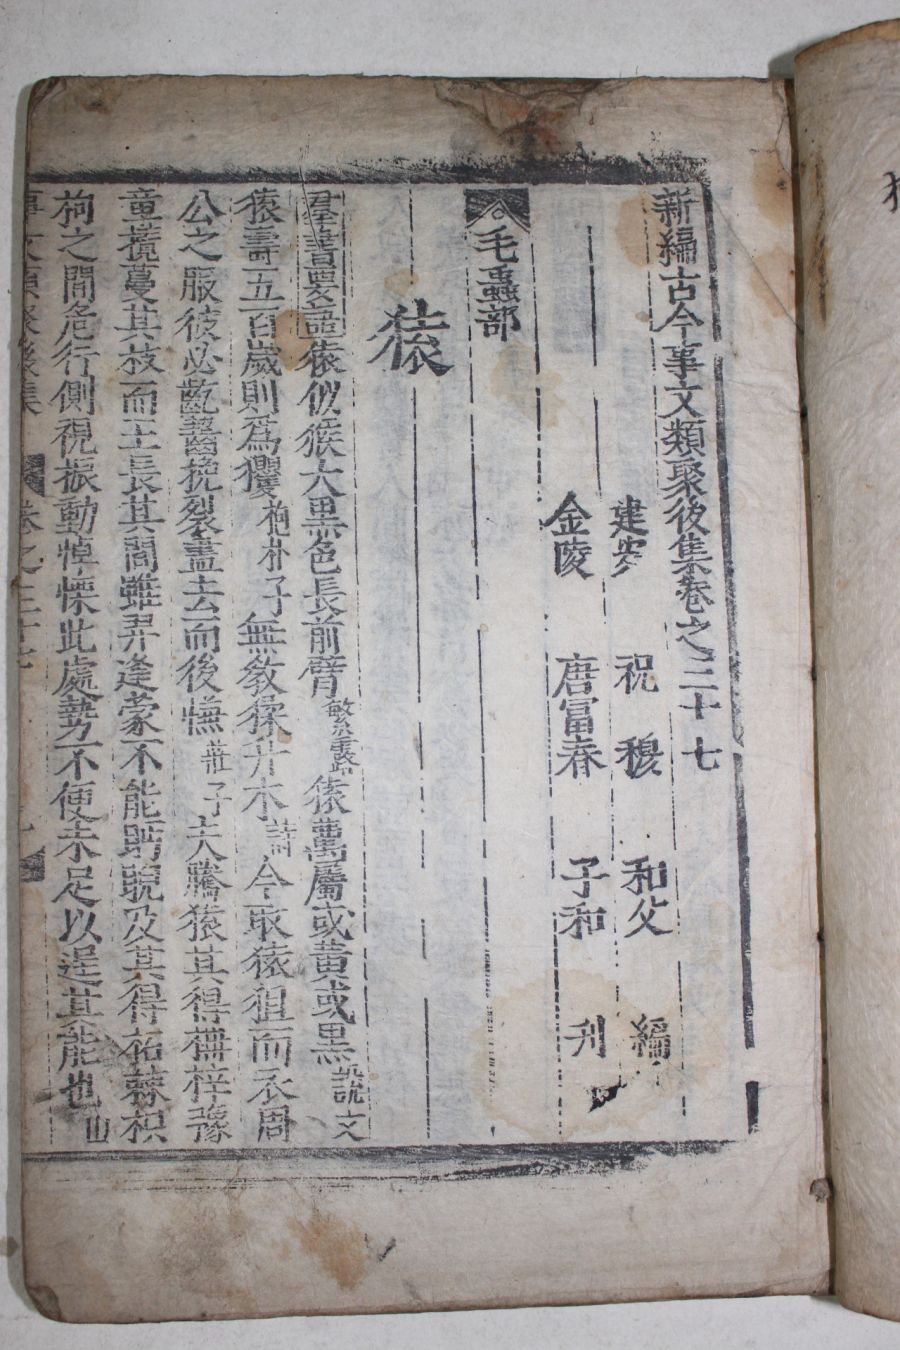 新編古今事文類聚後集卷之三十七
建安 祝穆 和父 編
金陵 唐富春 子和 刋
毛蟲部
猿
羣書要語猿似猴大黒色長前臂猿屬或黄或黒說文
猿壽五百歲則爲玃抱朴子無敎猱升木詩今取猿狙而衣周
公之服彼必齕齧挽裂盡去而後慊莊子夫騰猿其得柟梓豫
章攬蔓其枝而王長其間雖羿逢蒙不能眄睨及其得柘棘枳
枸之間危行側視振動悼慄此處勢不便未足以逞其能也山
事文類聚後集 卷之三十七